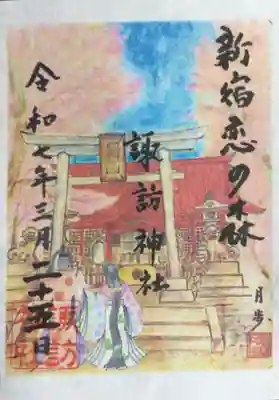 新宿恋の森
諏訪神社
令和七年三月二十五日
月歩